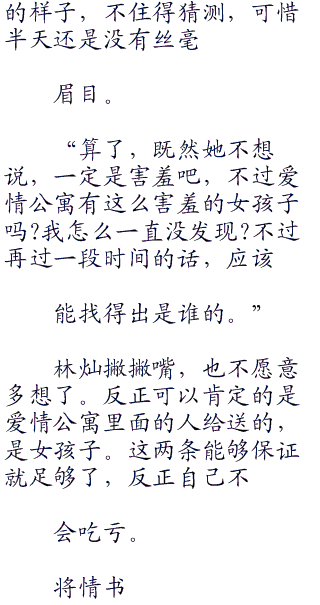 的样子，不住得猜测，可惜
半天还是没有丝毫
眉目。
“算了，既然她不想
说，一定是害羞吧，不过爱
情公寓有这么害羞的女孩子
吗?我怎么一直没发现?不过
再过一段时间的话，应该
能找得出是谁的。”
林灿撇撇嘴，也不愿意
多想了。反正可以肯定的是
爱情公寓里面的人给送的，
是女孩子。这两条能够保证
就足够了，反正自己不
会吃亏。
将情书